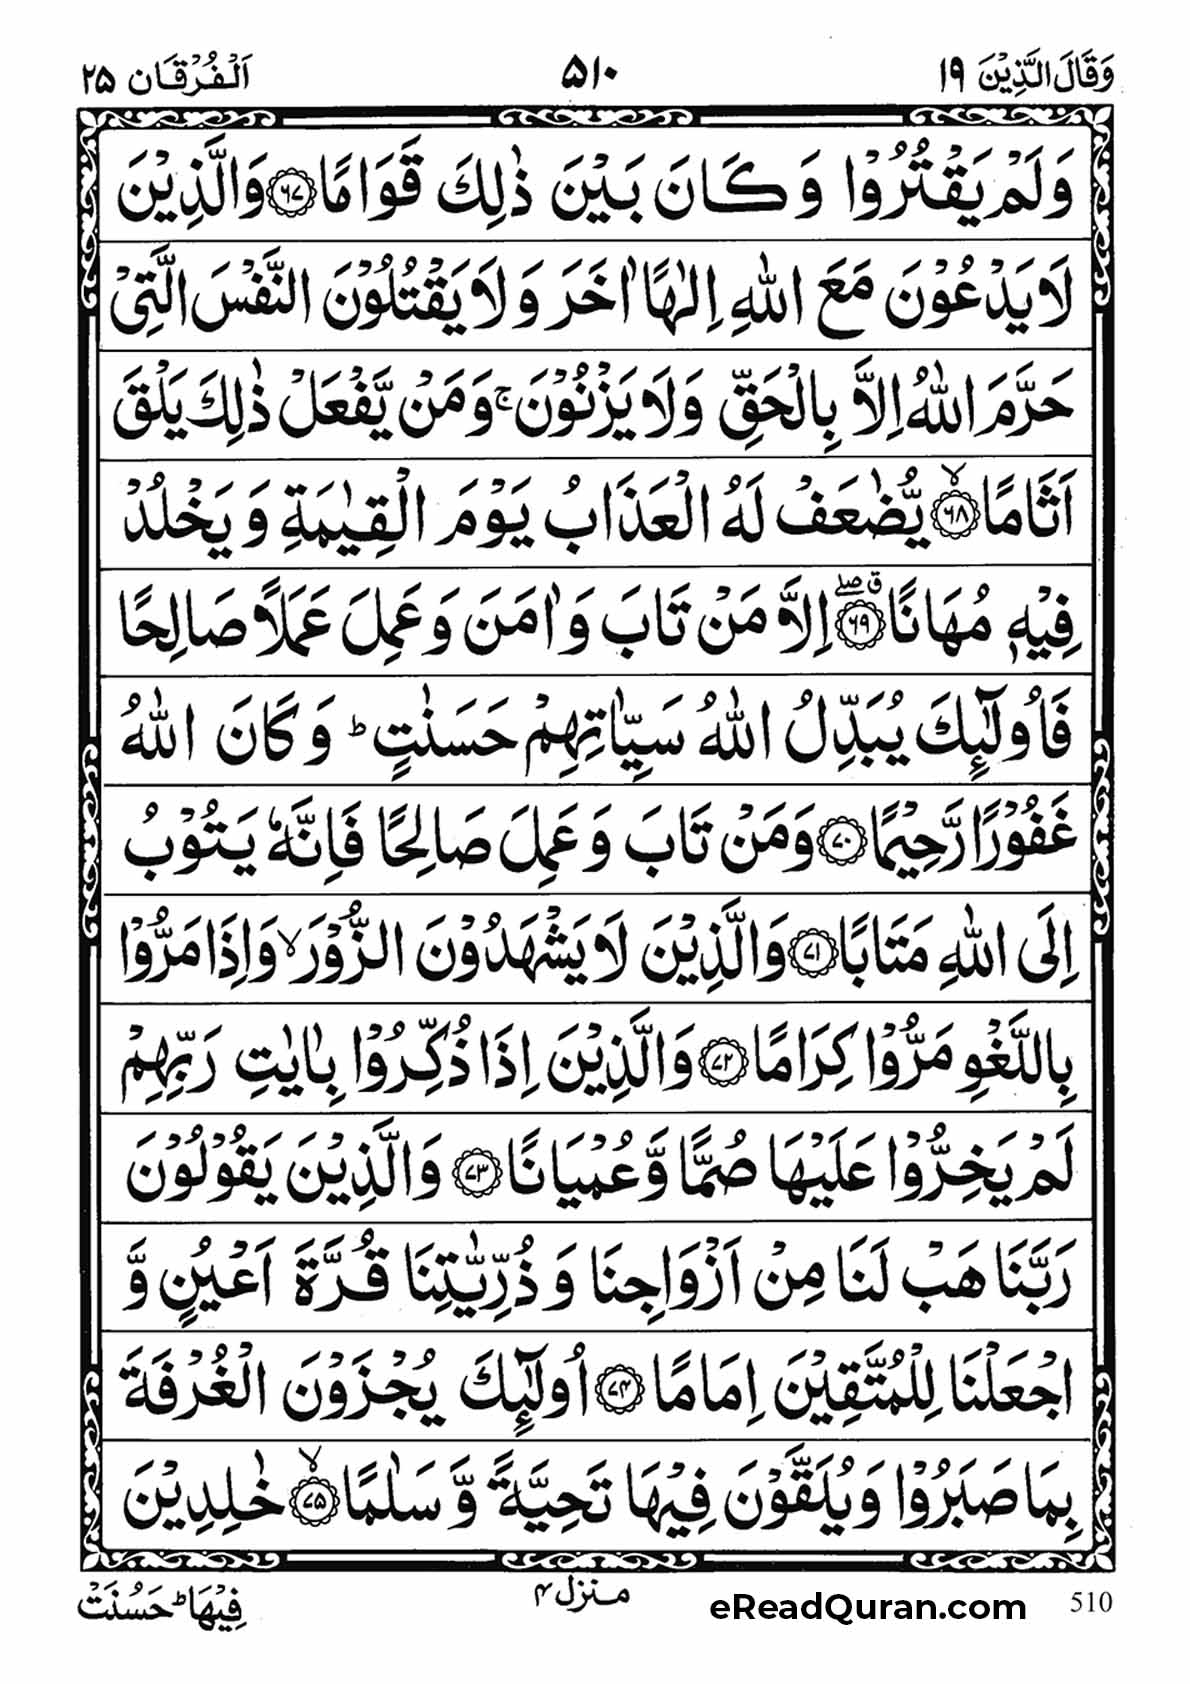 وَقَالَ الَّذِیْنَ ١٩ ۵١٠ اَلْفُرْقَان ٢۵
وَلَمْ یَقْتُرُوْا وَ كَانَ بَیْنَ ذٰلِكَ قَوَامًا ﴿٦٧﴾ وَالَّذِیْنَ
لَا یَدْعُوْنَ مَعَ اللّٰهِ اِلٰهًا اٰخَرَ وَ لَا یَقْتُلُوْنَ النَّفْسَ الَّتِیْ
حَرَّمَ اللّٰهُ اِلَّا بِالْحَقِّ وَلَا یَزْنُوْنَ ۚ وَمَنْ یَّفْعَلْ ذٰلِكَ یَلْقَ
اَثَامًا ﴿٦٨﴾ۙ یُّضٰعَفْ لَهُ الْعَذَابُ یَوْمَ الْقِیٰمَةِ وَ یَخْلُدْ
فِیْهٖ مُهَانًا ﴿٦٩﴾ۗۖ اِلَّا مَنْ تَابَ وَاٰمَنَ وَعَمِلَ عَمَلًا صَالِحًا
فَاُولٰٓئِكَ یُبَدِّلُ اللّٰهُ سَیِّاٰتِهِمْ حَسَنٰتٍ ؕ وَكَانَ اللّٰهُ
غَفُوْرًا رَّحِیْمًا ﴿٧٠﴾ وَمَنْ تَابَ وَعَمِلَ صَالِحًا فَاِنَّهٗ یَتُوْبُ
اِلَی اللّٰهِ مَتَابًا ﴿٧١﴾ وَالَّذِیْنَ لَا یَشْهَدُوْنَ الزُّوْرَ ۙ وَاِذَا مَرُّوْا
بِاللَّغْوِ مَرُّوْا كِرَامًا ﴿٧٢﴾ وَالَّذِیْنَ اِذَا ذُكِّرُوْا بِاٰیٰتِ رَبِّهِمْ
لَمْ یَخِرُّوْا عَلَیْهَا صُمًّا وَّعُمْیَانًا ﴿٧٣﴾ وَالَّذِیْنَ یَقُوْلُوْنَ
رَبَّنَا هَبْ لَنَا مِنْ اَزْوَاجِنَا وَ ذُرِّیّٰتِنَا قُرَّةَ اَعْیُنٍ وَّ
اجْعَلْنَا لِلْمُتَّقِیْنَ اِمَامًا ﴿٧۴﴾ اُولٰٓئِكَ یُجْزَوْنَ الْغُرْفَةَ
بِمَا صَبَرُوْا وَیُلَقَّوْنَ فِیْهَا تَحِیَّةً وَّ سَلٰمًا ﴿٧۵﴾ۙ خٰلِدِیْنَ
فِیْهَا ؕ حَسُنَتْ منزل ۴ eReadQuran.com 510